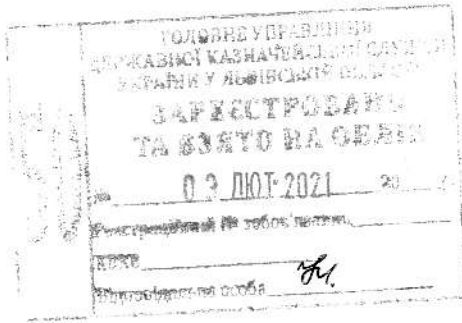 ГОЛОВНЕ УПРАВЛІННЯ
ДЕРЖАВНОЇ КАЗНАЧЕЙСЬКОЇ СЛУЖБИ
УКРАЇНИ У ЛЬВІВСЬКІЙ ОБЛАСТІ
ЗАРЕЄСТРОВАНО
ТА ВЗЯТО НА ОБЛІК
№ 0 ЛЮТ 2021 20
Реєстраційний № зобов'язання
КЕКВ
Відповідальна особа